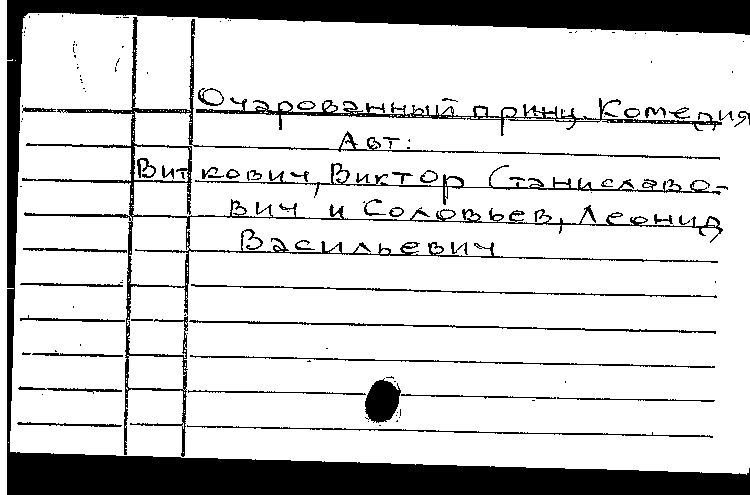 Очарованный принц. Комедия
Авт:
Виткович, Виктор Станиславо-
вич и Соловьев, Леонид
Васильевич